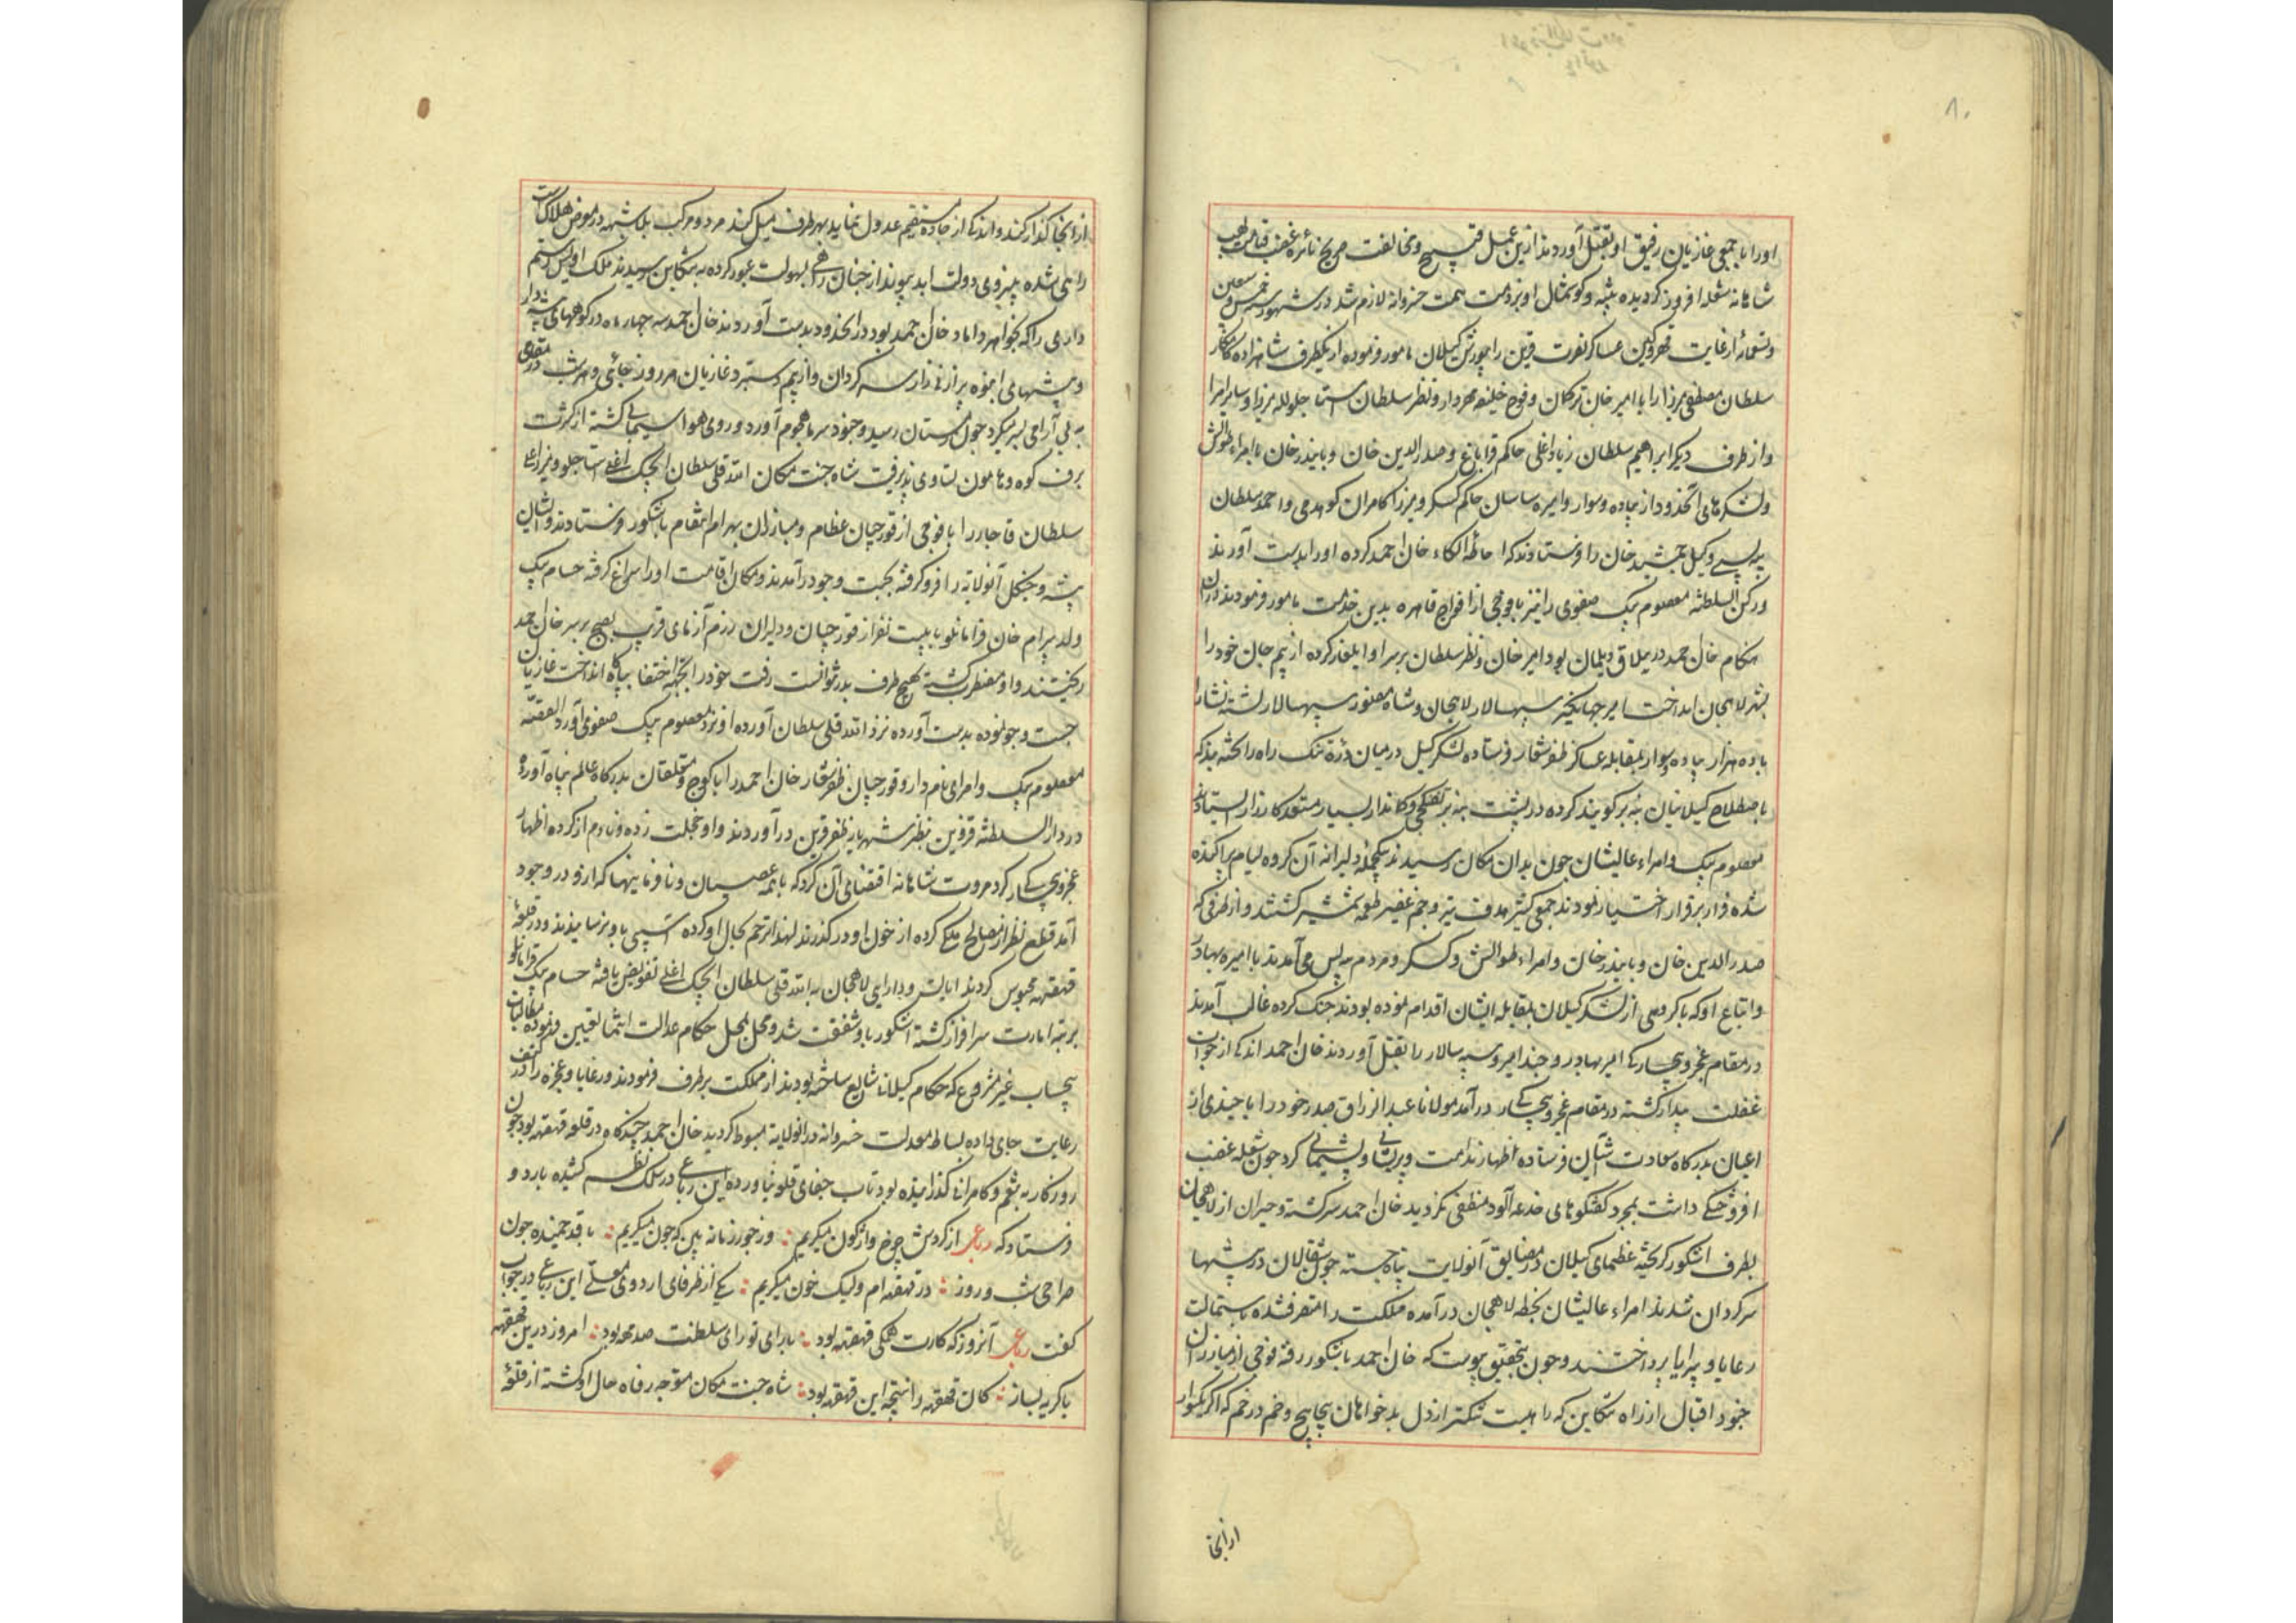 ۸۰
اورا با جمعی غازیان رفیق او بقتل آوردند ازین عمل قبیح و مخالفت صریح نائره غضب قیامت لهب
شاهانه شعله افروز گردیده تنبیه و گوشمال او بر ذمت همت خسروانه لازم شد در شهور سنه خمس و سبعین
و تسعمائه از غایت قهر و کین عساکر نصرت قرین را بیورش گیلان مامور فرموده از یکطرف شاهزاده کامکار
سلطان مصطفی میرزا را با امیر خان ترکمان و فوج خلیفه مهردار و نظر سلطان استاجلو لله میرزا و سایر امرا
و از طرف دیگر ابراهیم سلطان زیاد اغلی حاکم قراباغ و صدرالدین خان و بایندر خان با امراء طوالش
و لشکرهای آنحدود از پیاده و سوار و امیره ساسان حاکم گسکر و میرزا کامران کوهدمی و احمد سلطان
بیه پسی وکیل جمشید خان را فرستادند که احاطه الکاء خان احمد کرده اورا بدست آورند
و رکن السلطنه معصوم بیک صفوی را نیز با فوجی از افواج قاهره بدین خدمت مامور فرمودند دران
هنگام خان احمد در ییلاق دیلمان بود امیر خان و نظر سلطان بر سر او ایلغار کرده از بیم جان خود را
بشهر لاهجان انداخت امیر جهانگیر سپهسالار لاهجان و شاه منصور سپهسالار لشته نشا را
با ده هزار پیاده و سوار بمقابله عساکر ظفر شعار فرستاده لشکر گیل در میان دره تنک راه را کشه بند که
باصطلاح گیلانیان بنه بر گویند کرده در پشت بنه بر تفنکچی و کماندار بسیار مستعد کارزار ایستادند
معصوم بیک و امراء عالیشان چون بدان مکان رسیدند بیکحمله دلیرانه آن گروه لیام پراکنده
شده فرار بر قرار اختیار نمودند جمعی کثیر هدف تیر و جم غفیر طعمه شمشیر گشتند و از طرفی که
صدرالدین خان و بایندر خان و امراء طوالش و گسکر و مردم بیه پس می آمدند با امیره بهادر
و اتباع او که با گروهی از لشکر گیلان بمقابله ایشان اقدام نموده بودند جنک کرده غالب آمدند
در مقام عجز و بیچارکی امیر بهادر و چند امیر و سپه سالار را بقتل آوردند خان احمد اندکی از خواب
غفلت بیدار گشته در مقام عجز و بیچارکی درآمد مولانا عبدالرزاق صدر خود را با چندی از
اعیان بدرکاه سعادت آشیان فرستاده اظهار ندامت و پریشانی و پشیمانی کرد چون شعله غضب
افروختگی داشت بمجرد گفتگوهای خدعه آلود منطفی نگردید خان احمد سرگشته و حیران از لاهجان
بطرف اشکور گریخته عظمای گیلان در مضایق آنولایت پناه جسته چون شغالان در بیشها
سرگردان شدند امراء عالیشان بخطه لاهجان درآمده مملکت را متصرف شده باستمالت
رعایا و برایا پرداختند و چون بتحقیق پیوست که خان احمد باشکور رفته فوجی از مبارزان
جنود اقبال از راه تنکابن که راهیست تنکتر از دل بدخواهان پیچاپیچ و خم در خم که اگر یکسوار
ازانجا
ازانجا گذار کند و اندکی از جاده مستقیم عدول نماید بهر طرف میل کند مرد و مرکب بلاشبهه در معرض هلاکست
راهی شده بنیروی دولت ابد پیوند از چنان راهی بسهولت عبور کرده به تنکابن رسیدند ملک اویس رستم
داری را که بخواهر داماد خان احمد بود در انحدود بدست آوردند خان احمد سه چهار ماه در کوههای بیشه دار
و بیشهای انبوه پر از نی زار سرگردان و از بیم دستبرد غازیان هر روز جائی و هر شب در مقامی
به بی آرامی بسر میکرد چون زمستان رسید و جنود سرما هجوم آورد و روی هوا سیمابی گشته از کثرت
برف کوه و هامون تساوی پذیرفت شاه جنت مکان الله قلی سلطان ایجک اغلی استاجلو و میرزا علی
سلطان قاجار را با فوجی از قورچیان عظام و مبارزان بهرام انتقام باشکور فرستادند و ایشان
بیشه و جنگل آنولایة را فرو گرفته بجست و جو درآمدند و مکان اقامت اورا سراغ گرفته حسام بیک
ولد بیرام خان قرامانلو با بیست نفر از قورچیان و دلیران رزم آزمای قریب بصبح بر سر خان احمد
ریختند و او مضطرب گشته بهیچ طرف بدر نتوانست رفت خود را بجهه اختفا بپاگاه انداخت غازیان
جست و جو نموده بدست آورده نزد الله قلی سلطان آورده او نزد معصوم بیک صفوی آورد القصه
معصوم بیک و امرای نام دار و قورچیان ظفر شعار خان احمد را با کوج و متعلقان بدرکاه عالم پناه آورده
در دارالسلطنه قزوین بنظر شهریار ظفر قرین درآوردند و او خجلت زده و نادم از کرده اظهار
عجز و بیچارکی کرد مروت شاهانه اقتضای آن کرد که با همه عصیان و نافرمانیها که ازو در وجود
آمد قطع نظر از مصالح ملکی کرده از خون او درگذرند لهذا ترحم بحال او کرده آسیبی باو نرسانیدند و در قلعه
قهقهه محبوس گردید ایالت و دارایی لاهجان به الله قلی سلطان ایجک اغلی تفویض یافته حسام بیک قرامانلو
برتبه امارت سرافراز گشته اشکور باو شفقت شد و محل بمحل حکام عدالت انتما تعیین فرموده مطالبات
بیحساب غیر مشروع که حکام گیلانا شایع ساخته بودند از مملکت برطرف فرمودند و رعایا و عجزه را در کنف
رعایت جای داده بساط معدلت خسروانه در انولایة مبسوط گردید خان احمد چندگاه در قلعه قهقهه بود چون
روزگار به تنعم و کامرانی گذرانیده بود تاب جفای قلعه نیاورده این رباعی در سلک نظم کشیده باردو
فرستاد که رباعی از گردش چرخ واژگون میگریم ؛ وز جور زمانه بین که چون میگریم ؛ با قد خمیده چون
صراحی شب و روز ؛ در قهقهه ام ولیک خون میگریم ؛ یکی از ظرفای اردوی معلی این رباعی در جواب
گفت رباعی آنروز که کارت همگی قهقهه بود ؛ با رای تو رای سلطنت صد مهه بود ؛ امروز درین قهقهه
با گریه بساز ؛ کان قهقهه را نتیجه این قهقهه بود ؛ شاه جنت مکان متوجه رفاه حال او گشته از قلعه